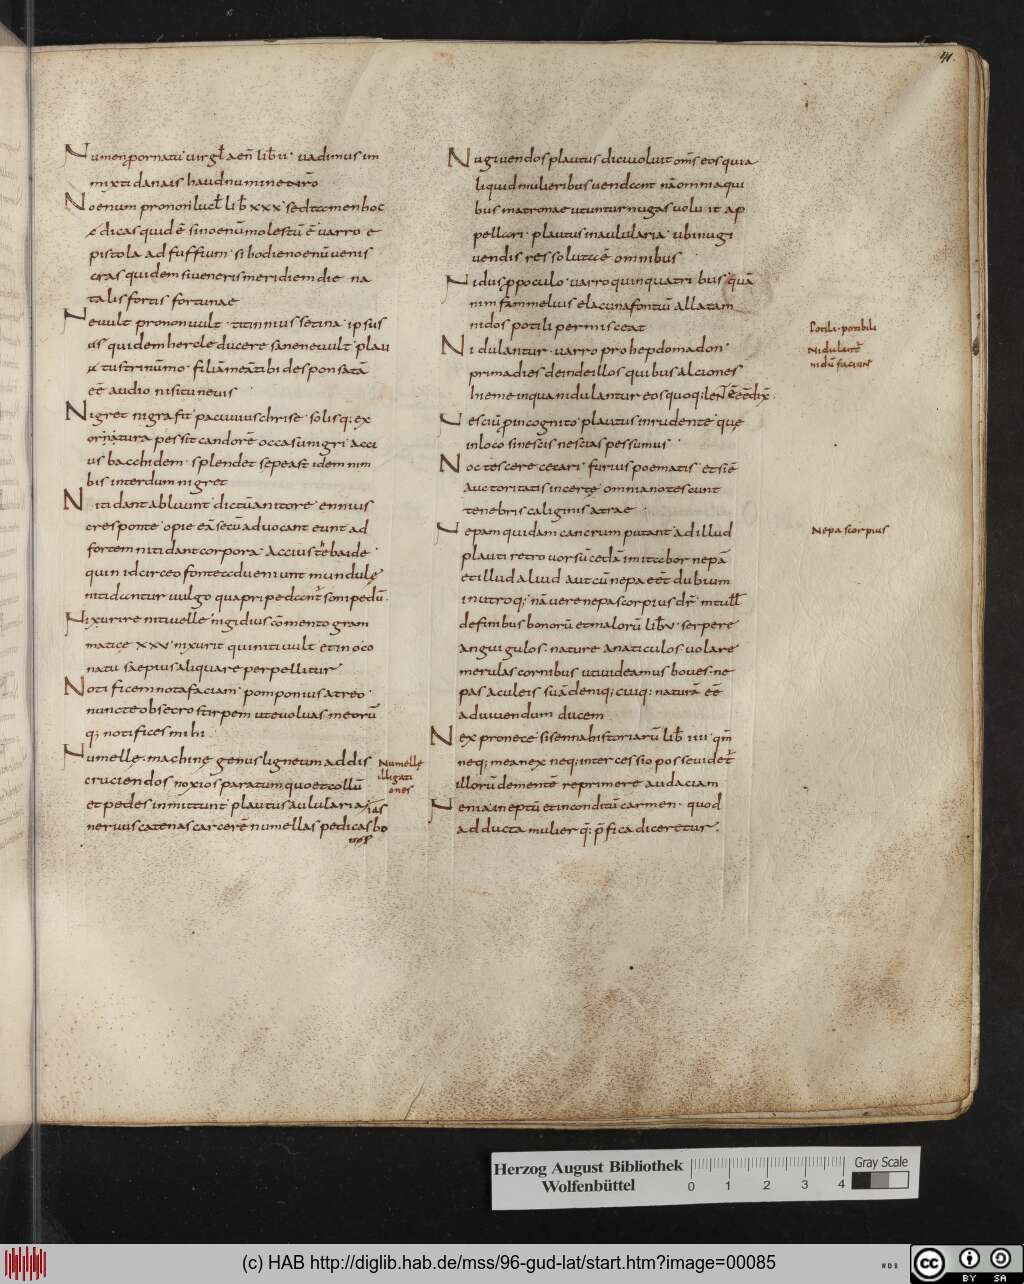 41.
Numen pornatū virgł aeñ lib̄ ii· vadimus im
mixti danais haud numine nr̄o
Noenum pro non lucł lib̄ xxx sed tamen hoc
dicas quid ē sinoenū molestū ē varro e
pistola ad fuffium· si hodie noenū venis
cras quidem si veneris meridiem die na
talis fortis fortunae
Nevult pro nonvult· titinnius setina· ipsus
us quidem hercle ducere sane nevult· plau
tus trinūmo· filiā meā tibi desponsatā
eē audio nisi tu nevis
Nigret nigra fit pacuvius chrise· solisq; ex
ornatura pessit candorē occasu nigri· acci
us bacchidem· splendet sepe ast idem nim
bis interdum nigret
Nitidant abluunt dictū a nitore· ennius
cresponte· opie eā secū advocant eunt ad
fortem nitidant corpora· Accius thebaide·
quin id circo fonte adveniunt mundulę
nitidantur vulgo quadripedant sonipedū·
Nixurire niti velle· nigidius cōmento gram
matice xxv· nixurit qui niti vult et in oco
natu saepius aliqua re perpellitur
Notificem nota faciam· pomponius atreo·
nunc te obsecro stirpem ut evolvas meorū
q; notifices mihi·
Numelle· machine genus ligneum ad dis
cruciendos noxios paratum quo et collū
et pedes inmittunt plautus aulularia ias
nervus catenas carcerē numellas pedicas bo
Numellę
illigati
ones
Nugivendos plautus dici voluit om̄s eos qui a
liquid mulieribus vendant nā omnia qui
bus matronae utuntur nugas voluit ap
pellari· plautus in aulularia· ubi nugi
vendis res soluta ē omnibus·
Nidus p poculo· varro quinquatribus· quā
nim fam̄ melius e lacuna fontiū allatam
nidos potili permisceat
Nidulantur· varro pro hepdomadon·
prima dies deinde illos quibus alciones
hieme in qua nidulantur eos quoq;
Nesciū p incognito· plautus in rudente· que
in loco sine scis nescias pessumus
Noctescere cecari· furius poematis· et si ē
auctoritatis incerte· omnia noctescunt
tenebris caliginis atrae·
Nepam quidam cancrum putant· ad illud
plauti retro vorsū cedā imitabor nepā
et illud aliud aut cū nepa eēt dubium
in utroq; nā vere nepa scorpius dr̄· m tull
de finibus bonorū et malorū lib̄ v· serpere
anguigulos· nature anaticulos· volare
merulas cornibus uti videamus boves· ne
pas aculeis suā deniq; cuiq; naturā eē
ad vivendum ducem
Nex pro nece sisenna historiarū lib̄ iiii· qm̄
neq; mea nex neq; intercessio posse videt
illorū dementē reprimere audaciam
Nenia ineptū et inconditū carmen· quod
adducta mulier q̄; p̄fica diceretur·
Potili· potibili
Nidulant
nidū faciunt
Nepa scorpius
Herzog August Bibliothek
Wolfenbüttel
0 1 2 3 4
Gray Scale
(c) HAB http://diglib.hab.de/mss/96-gud-lat/start.htm?image=00085
WDB
cc BY SA